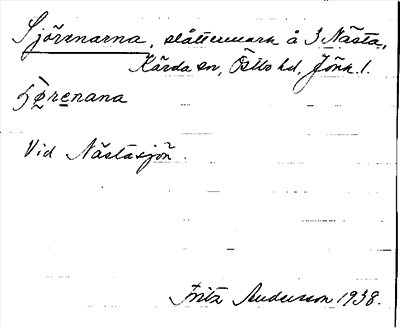 Sjörenarna, slåttermark å 3 Nästa,
Kärda sn, Östbo hd, Jönk. l.
ʃørenana
Vid Nästasjön.
Fritz Andersson 1938.